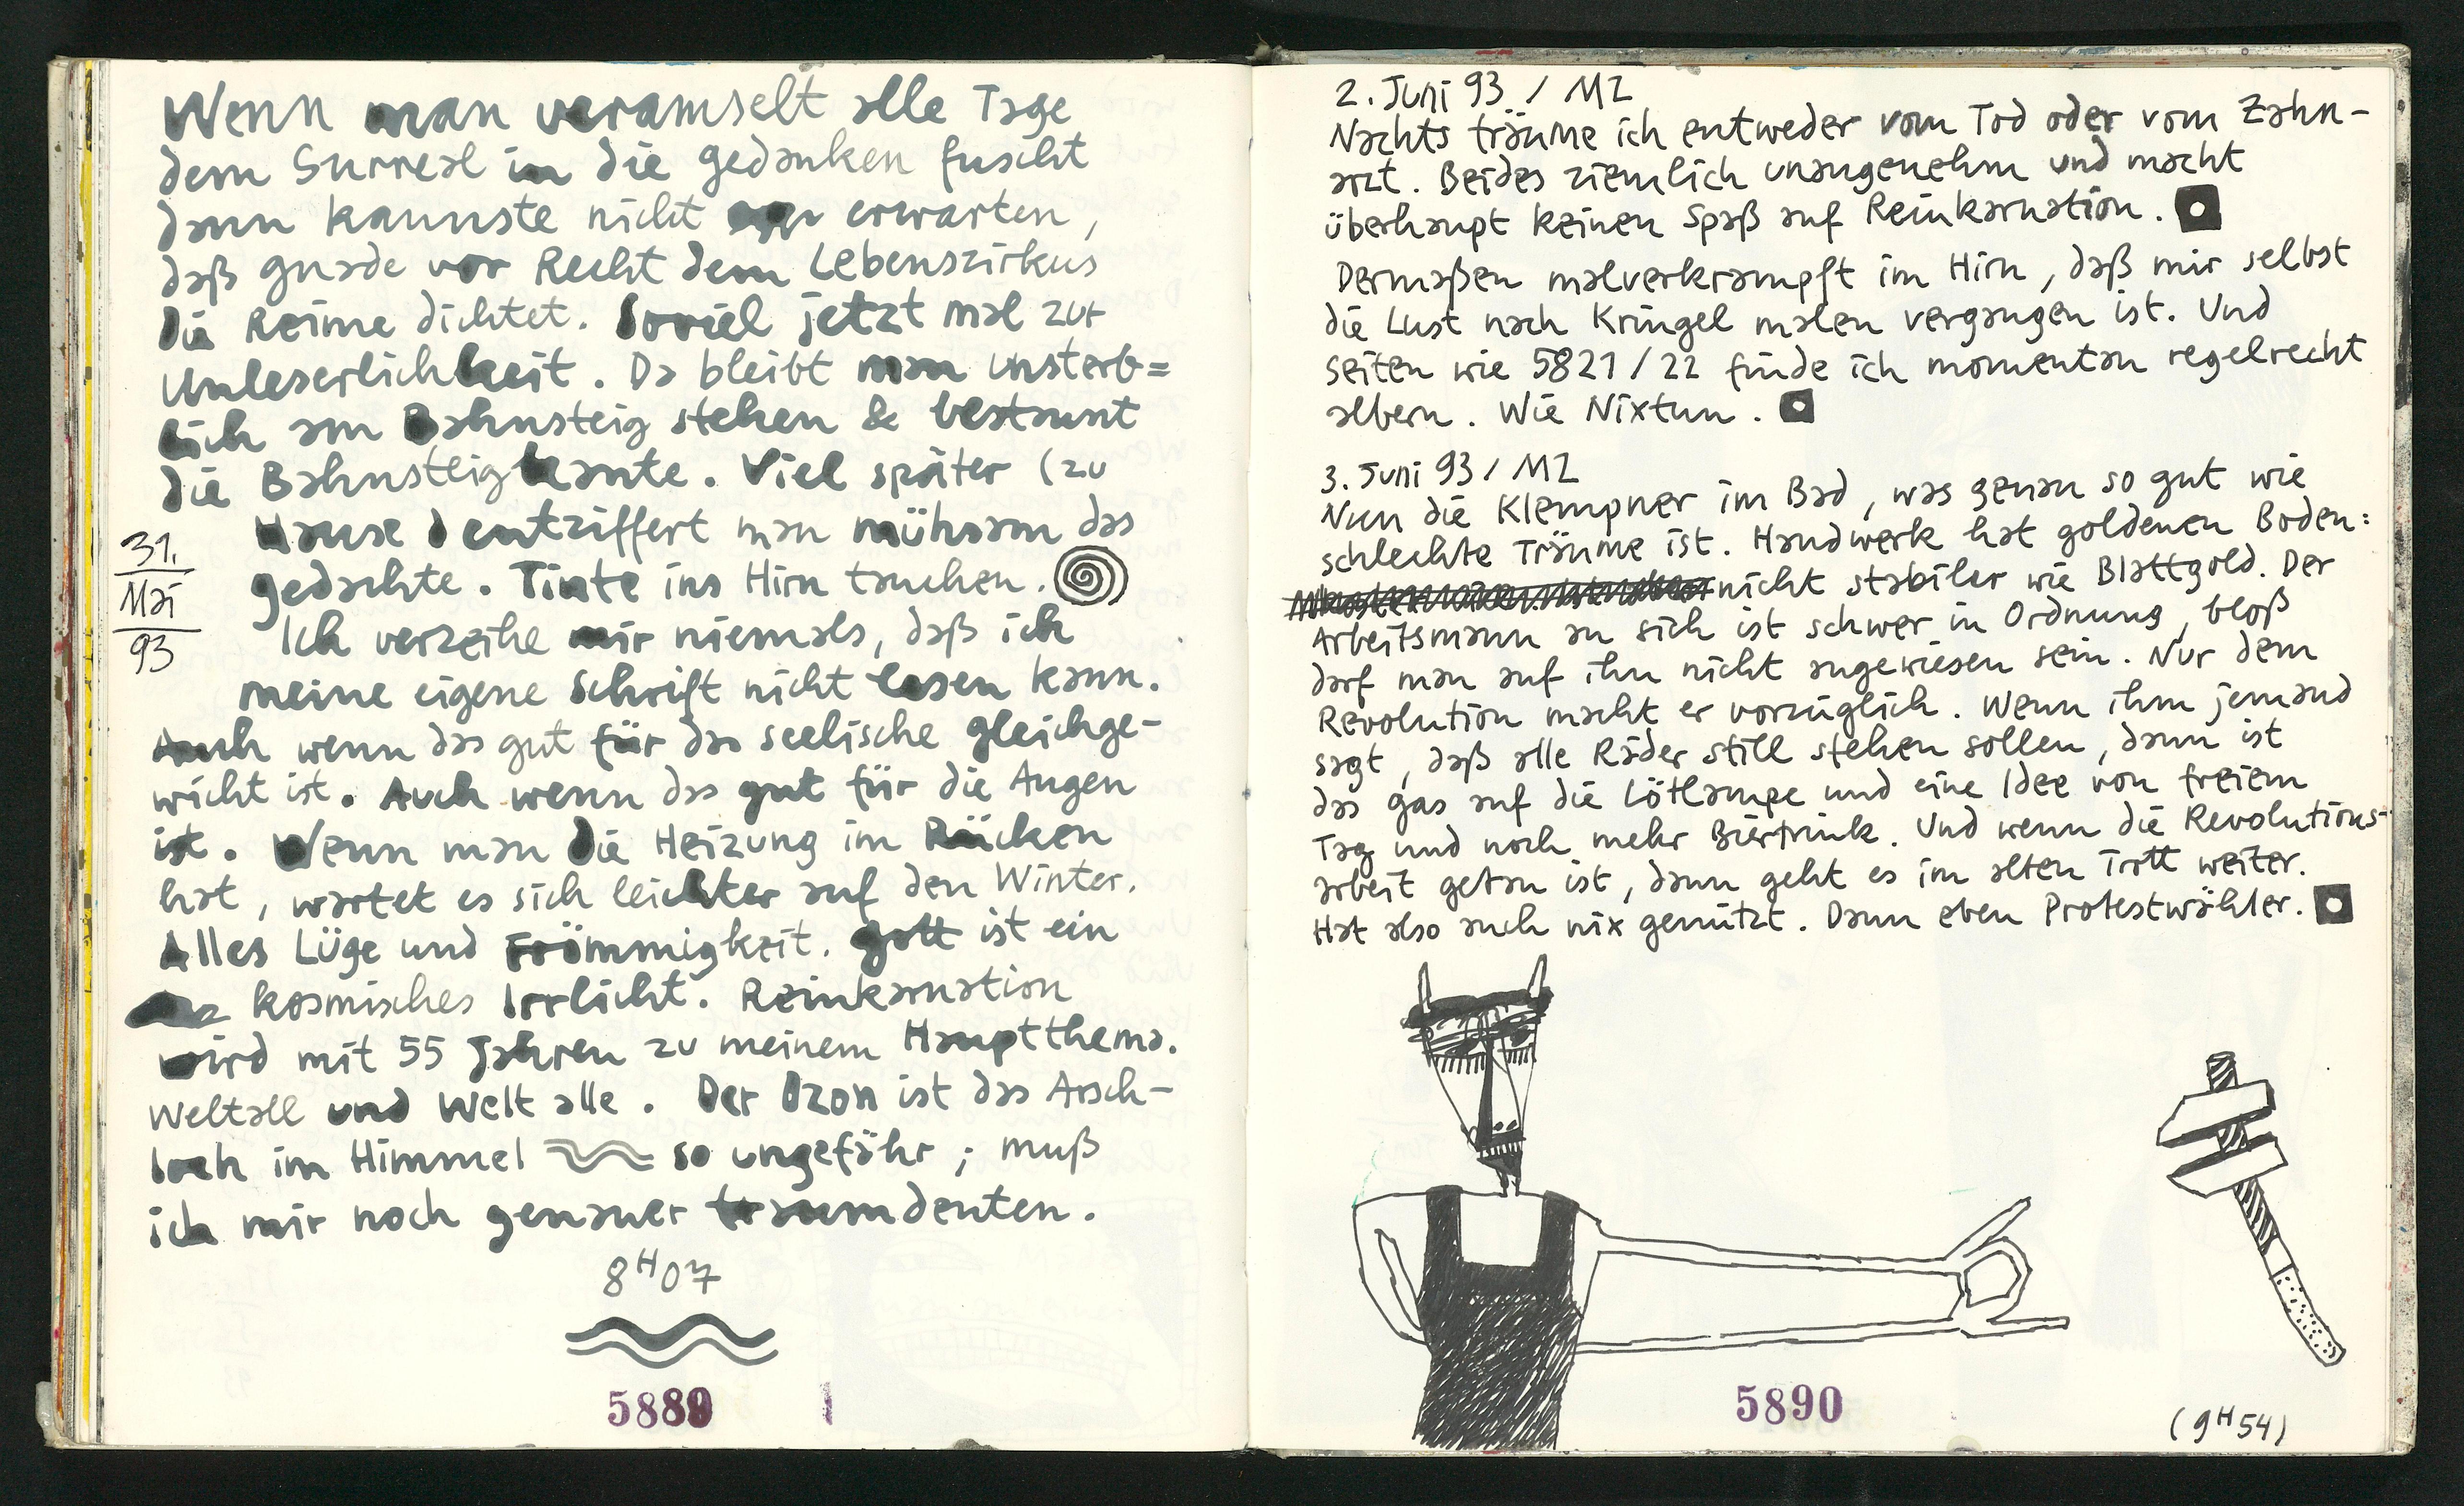 Wenn man veramselt alle Tage
dem Surreal in die Gedanken fuscht
dann kannste nicht erwarten,
daß Gnade vor Recht dem Lebenszirkus
die Reime dichtet. Soviel jetzt mal zur
Unleserlichkeit. Da bleibt man unsterb=
lich am Bahnsteig stehen & bestaunt
die Bahnsteigkante. Viel später (zu
Hause) entziffert man mühsam das
Gedachte. Tinte ins Hirn tauchen.
31.
Mai
93
Ich verzeihe mir niemals, daß ich
meine eigene Schrift nicht lesen kann.
Auch wenn das gut für das seelische Gleichge-
wicht ist. Auch wenn das gut für die Augen
ist. Wenn man die Heizung im Rücken
hat, wartet es sich leichter auf den Winter.
Alles Lüge und Frömmigkeit. Gott ist ein
kosmisches Irrlicht. Reinkarnation
wird mit 55 Jahren zu meinem Hauptthema.
Weltall und Welt alle. Der Ozon ist das Arsch-
loch im Himmel so ungefähr; muß
ich mir noch genauer traumdeuten.
8H07
5889
2. Juni 93 / MZ
Nachts träume ich entweder vom Tod oder vom Zahn-
arzt. Beides ziemlich unangenehm und macht
überhaupt keinen Spaß auf Reinkarnation.
Dermaßen malverkrampft im Hirn, daß mir selbst
die Lust nach Kringel malen vergangen ist. Und
Seiten wie 5821/22 finde ich momentan regelrecht
albern. Wie Nixtun.
3. Juni 93 / MZ
Nun die Klempner im Bad, was genau so gut wie
schlechte Träume ist. Handwerk hat goldenen Boden:
nicht stabiler wie Blattgold. Der
Arbeitsmann an sich ist schwer in Ordnung, bloß
darf man auf ihn nicht angewiesen sein. Nur dem
Revolution macht er vorzüglich. Wenn ihm jemand
sagt, daß alle Räder still stehen sollen, dann ist
das Gas auf die Lötlampe und eine Idee von freiem
Tag und noch mehr Biertrink. Und wenn die Revolutions-
arbeit getan ist, dann geht es im alten Trott weiter.
Hat also auch nix genützt. Dann eben Protestwähler.
5890
(9H54)